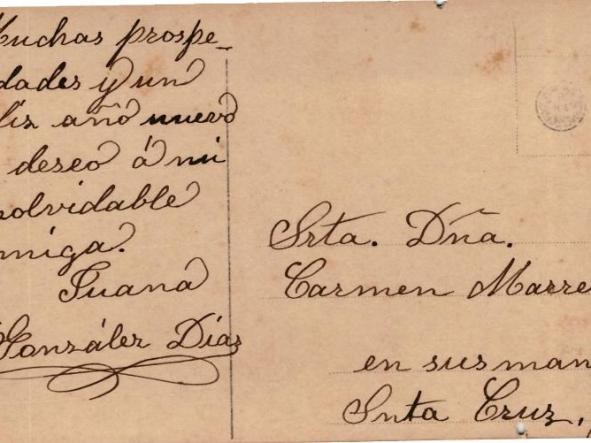 Muchas prospe_
idades y un
liz año nuevo
deseo á mi
nolvidable
amiga.
Juana
González Díaz
Srta. Dña.
Carmen Marre
en sus man
Snta Cruz,